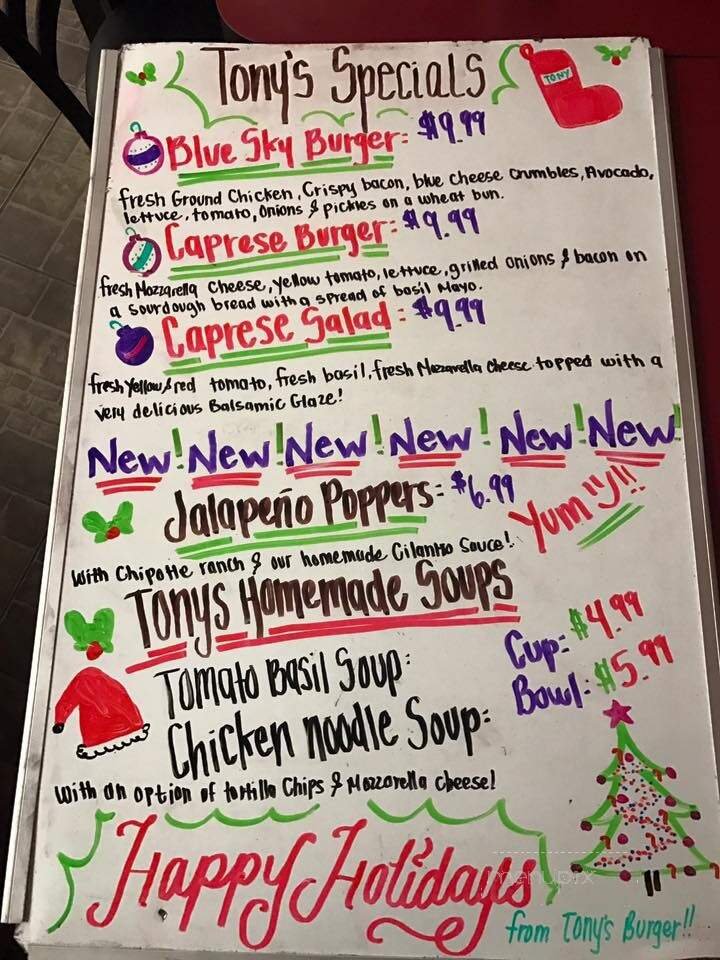 Tony's Specials
TONY
Blue Sky Burger: $9.99
fresh Ground Chicken, Crispy bacon, blue cheese crumbles, Avocado,
lettuce, tomato, onions & pickles on a wheat bun.
Caprese Burger: $9.99
fresh Mozzarella cheese, yellow tomato, lettuce, grilled onions & bacon on
a sourdough bread with a spread of basil mayo.
Caprese Salad: $9.99
fresh yellow & red tomato, fresh basil, fresh Mezarella cheese topped with a
very delicious Balsamic Glaze!
New! New! New! New! New! New!
Jalapeño Poppers: $6.99
Yum!!!
with Chipotle ranch & our homemade Cilantro Sauce!
Tonys Homemade Soups
Cup: $4.99
Tomato Basil Soup:
Bowl: $5.99
Chicken noodle Soup:
with an option of tortilla Chips & Mozzarella cheese!
Happy Holidays
menupix
from Tony's Burger!!